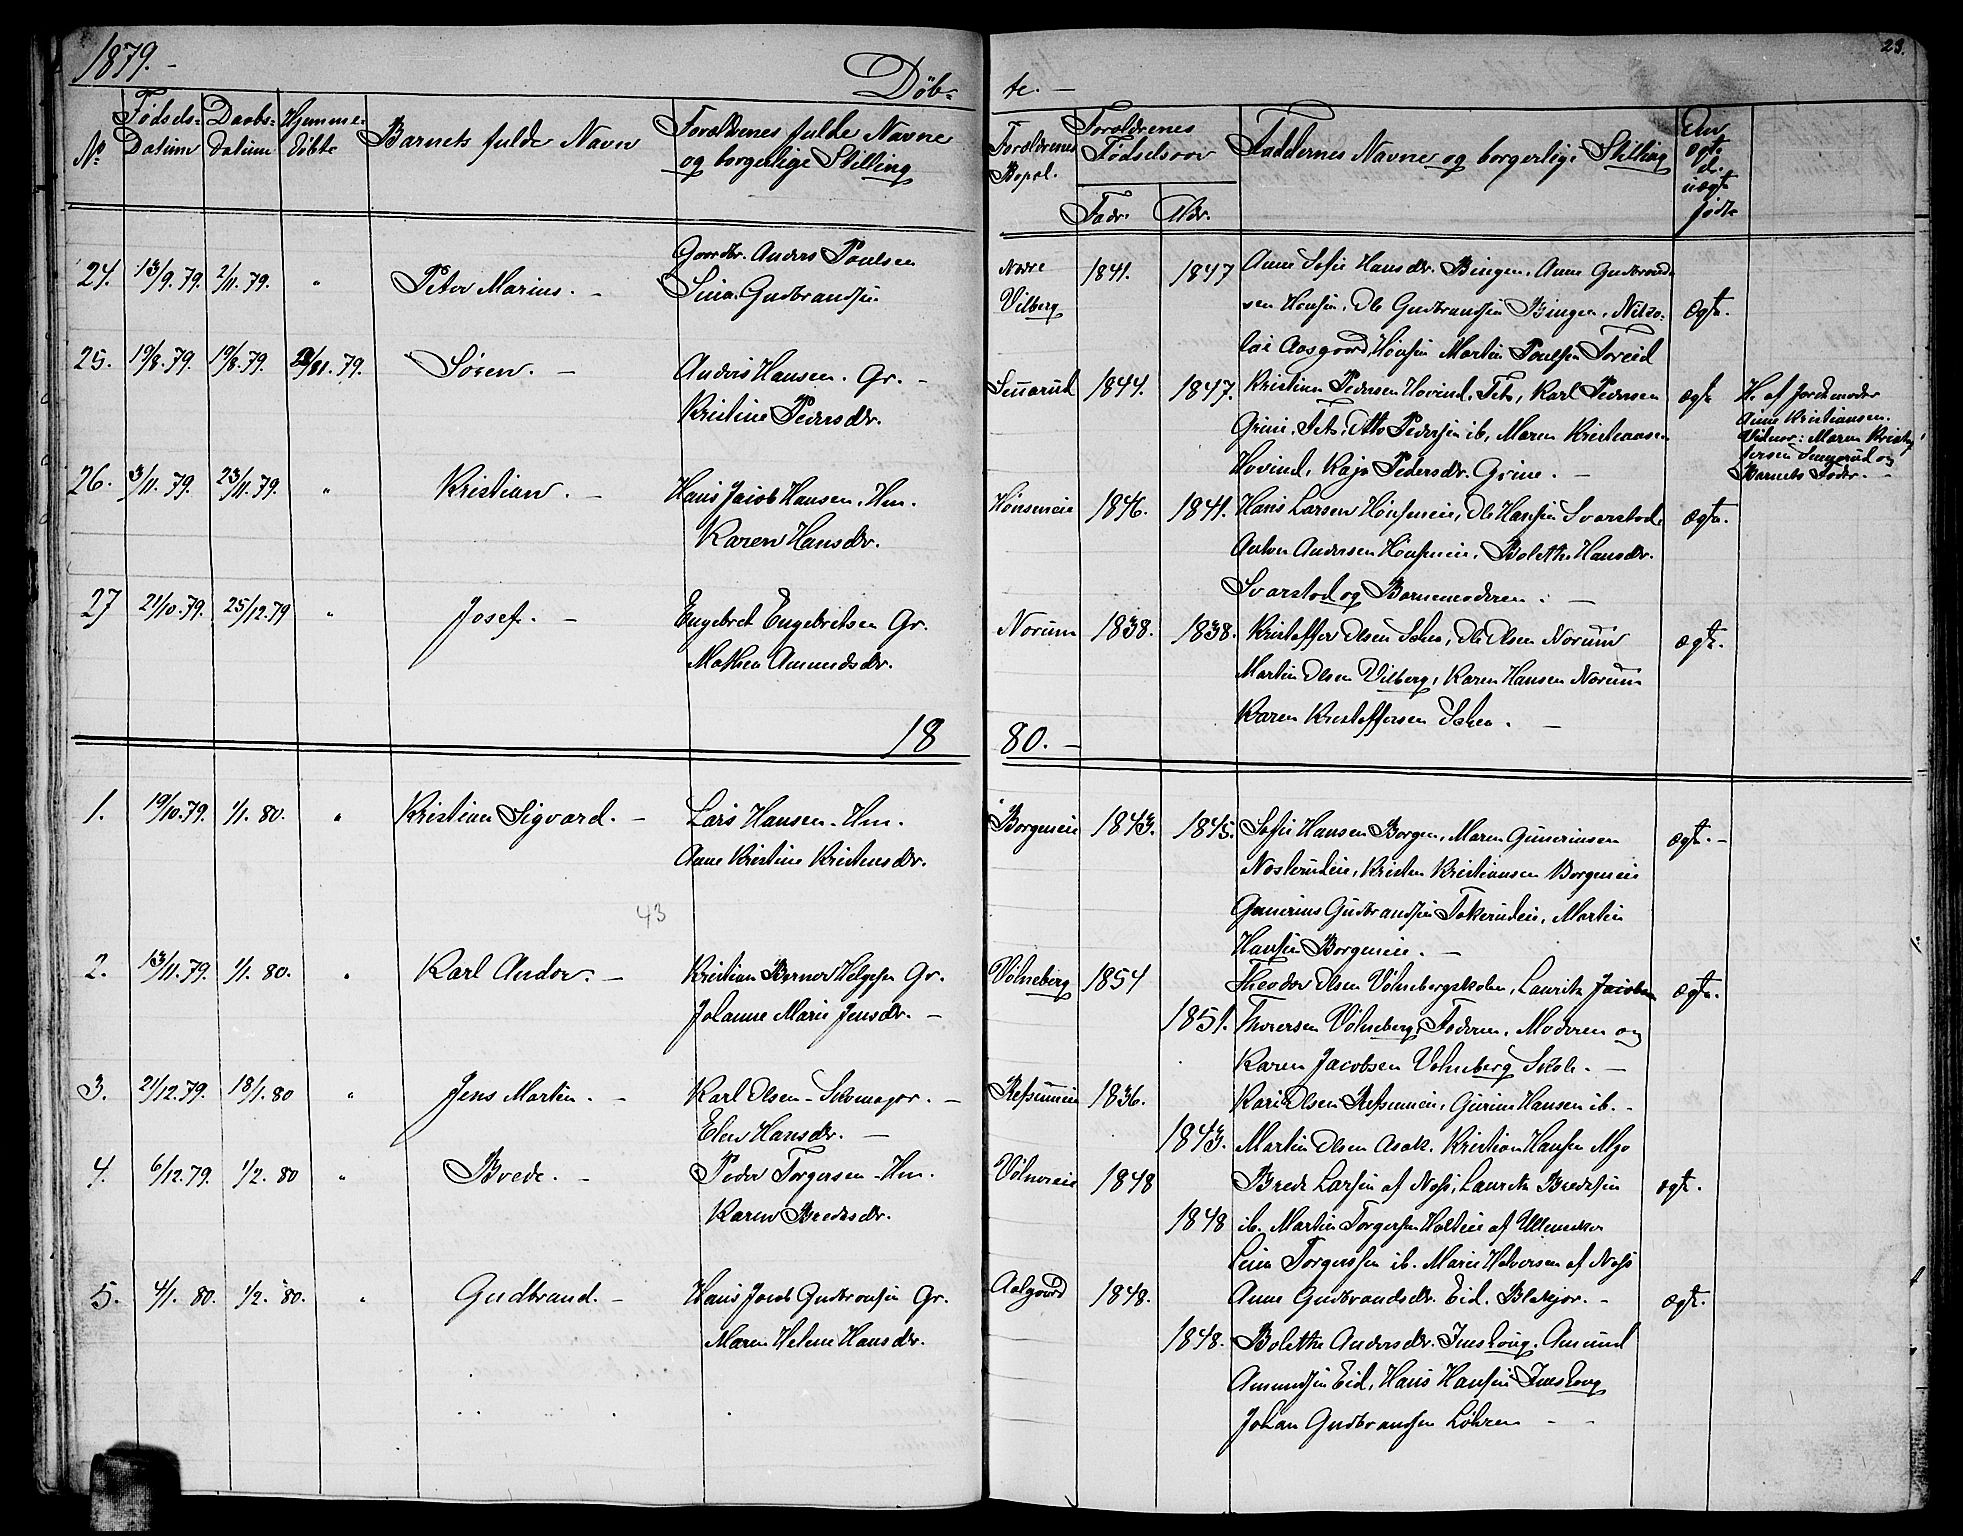 1879. -
Döb-
te. -
23.
No.
Fødsels-
Datum
Daabs-
Datum
Hjemme-
døbte
Barnets fulde Navn
Forældrenes fulde Navne
og borgerlige Stilling
Forældrenes
Bopæl.
Forældrenes
Fødselsaar
Fadr. Mr.
Faddernes Navne og borgerlige Stilling
Om
ægte
el.
uægte
født
24. 13/9. 79. 2/11. 79. " Peter Marius. -
Gaardbr. Anders Poulsen
Lina Gudbrandsen
Nordre
Vilberg
1841. 1847
Anne Sofie Hansdr. Bingen, Anne Gudbrand-
sen Hønsen, Ole Gudbrandsen Bingen, Nico-
lai Aasgaard, Hønsen Martin Poulsen Foreid
ægte.
25. 19/8. 79. 19/8. 79. 79. Søren. -
Anders Hansen. Gr. -
Kristine Pedersdr.
1844. 1847.
Kristian Pedersen Hovind, Fets, Karl Pedersen
Grini, Fets, Otto Pedersen ib, Maren Kristiansen
Hovind, Kaja Pedersdr. Grine. -
ægte
H. af Jordemoder
Anne Kristiansen.
Vidner: Maren
og
Barnets Fader. -
26. 3/11. 79. 23/11. 79. " Kristian. -
Hans Jacob Hansen. Hm.
Karen Hansdr.
Hønsmeie 1846. 1841.
Hans Larsen Hønsmeie, Ole Hansen Svarstad
Anton Andersen Hønsmeie, Bolette Hansdr.
Svarstad og Barnemoderen. -
ægte.
27 21/10. 79. 25/12. 79 " Josef. -
Engebret Engebretsen Gr.
Mathea Amundsdr.
Norum 1838. 1838.
Kristoffer Olsen, Ole Olsen Norum
Martin Olsen Vilberg, Karen Hansen Norum
Karen Kristoffersen. -
ægte.
18 80. -
1. 19/10. 79. 1/1. 80. " Kristian Sigvard. -
Lars Hansen - Hm.
Anne Kristine Kristensdr.
Borgeneie 1843. 1845.
Sofie Hansen Borgen, Maren Gunerinsen
Nosterudeie, Kristen Kristiansen Borgeneie
Gunerius Gudbrandsen Tokerudeie, Martin
Hansen Borgeneie. -
ægte. -
43
2. 13/11. 79. 1/1. 80. " Karl Andor. -
Kristian Berner Helgesen Gr.
Johanne Marie Jensdr. -
Vølneberg 1854
1851.
Theodor Olsen Vølnebergskolen, Lauritz Jacobsen
Thoresen Vølneberg, Faderen, Moderen og
Karen Jacobsen Vølneberg Skole. -
ægte.
3. 21/12. 79. 18/1. 80 " Jens Martin. -
Karl Olsen - Skomager. -
Elen Hansdr. -
Refsumeie 1836.
1843.
Kari Olsen Refsumeie, Gurine Hansen ib. -
Martin Olsen Asak, Kristian Hansen Mjo
4. 6/12. 79. 1/2. 80 " Brede. -
Peder Torgersen - Hm.
Karen Bredesdr.
1848
1848
Brede Larsen af Næs, Lauritz Bredesen
ib. Martin Torgersen Holteie af Ullensaker
Lina Torgersen ib. Marie Halvorsen af Næs
ægte.
5. 4/1. 80. 1/2. 80. " Gudbrand. -
Hans Jacob Gudbrandsen Gr.
Maren Helene Hansdr.
Aalgaard 1848.
1848.
Anne Gudbrandsdr. Eid. Blakjær. -
Bolette Andersdr. Imshoug, Amund
Amundsen Eid, Hans Hansen Imshoug
Johan Gudbrandsen Løhren - -
ægte.